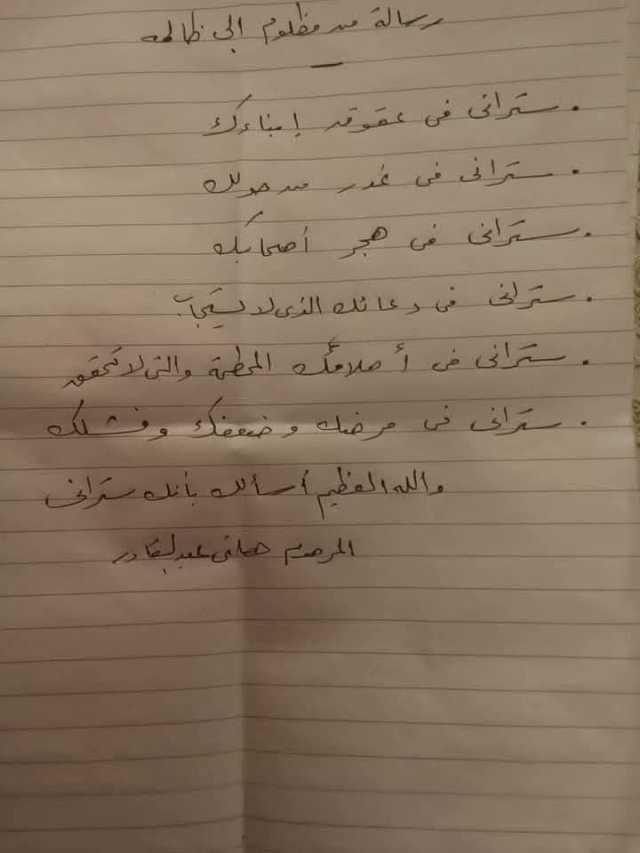 رسالة من مظلوم إلى ظالمه
. ستراني في عقوق إبناءك
. ستراني في غدر من حولك
. ستراني في هجر أصحابك
. ستراني في دعائك الذي لا يستجاب
. ستراني في أحلامك المحطمة والتي لا تتحقق
. ستراني في مرضك وضعفك وفشلك
والله العظيم أسألك بأنك ستراني
المرحوم هاني عبد القادر